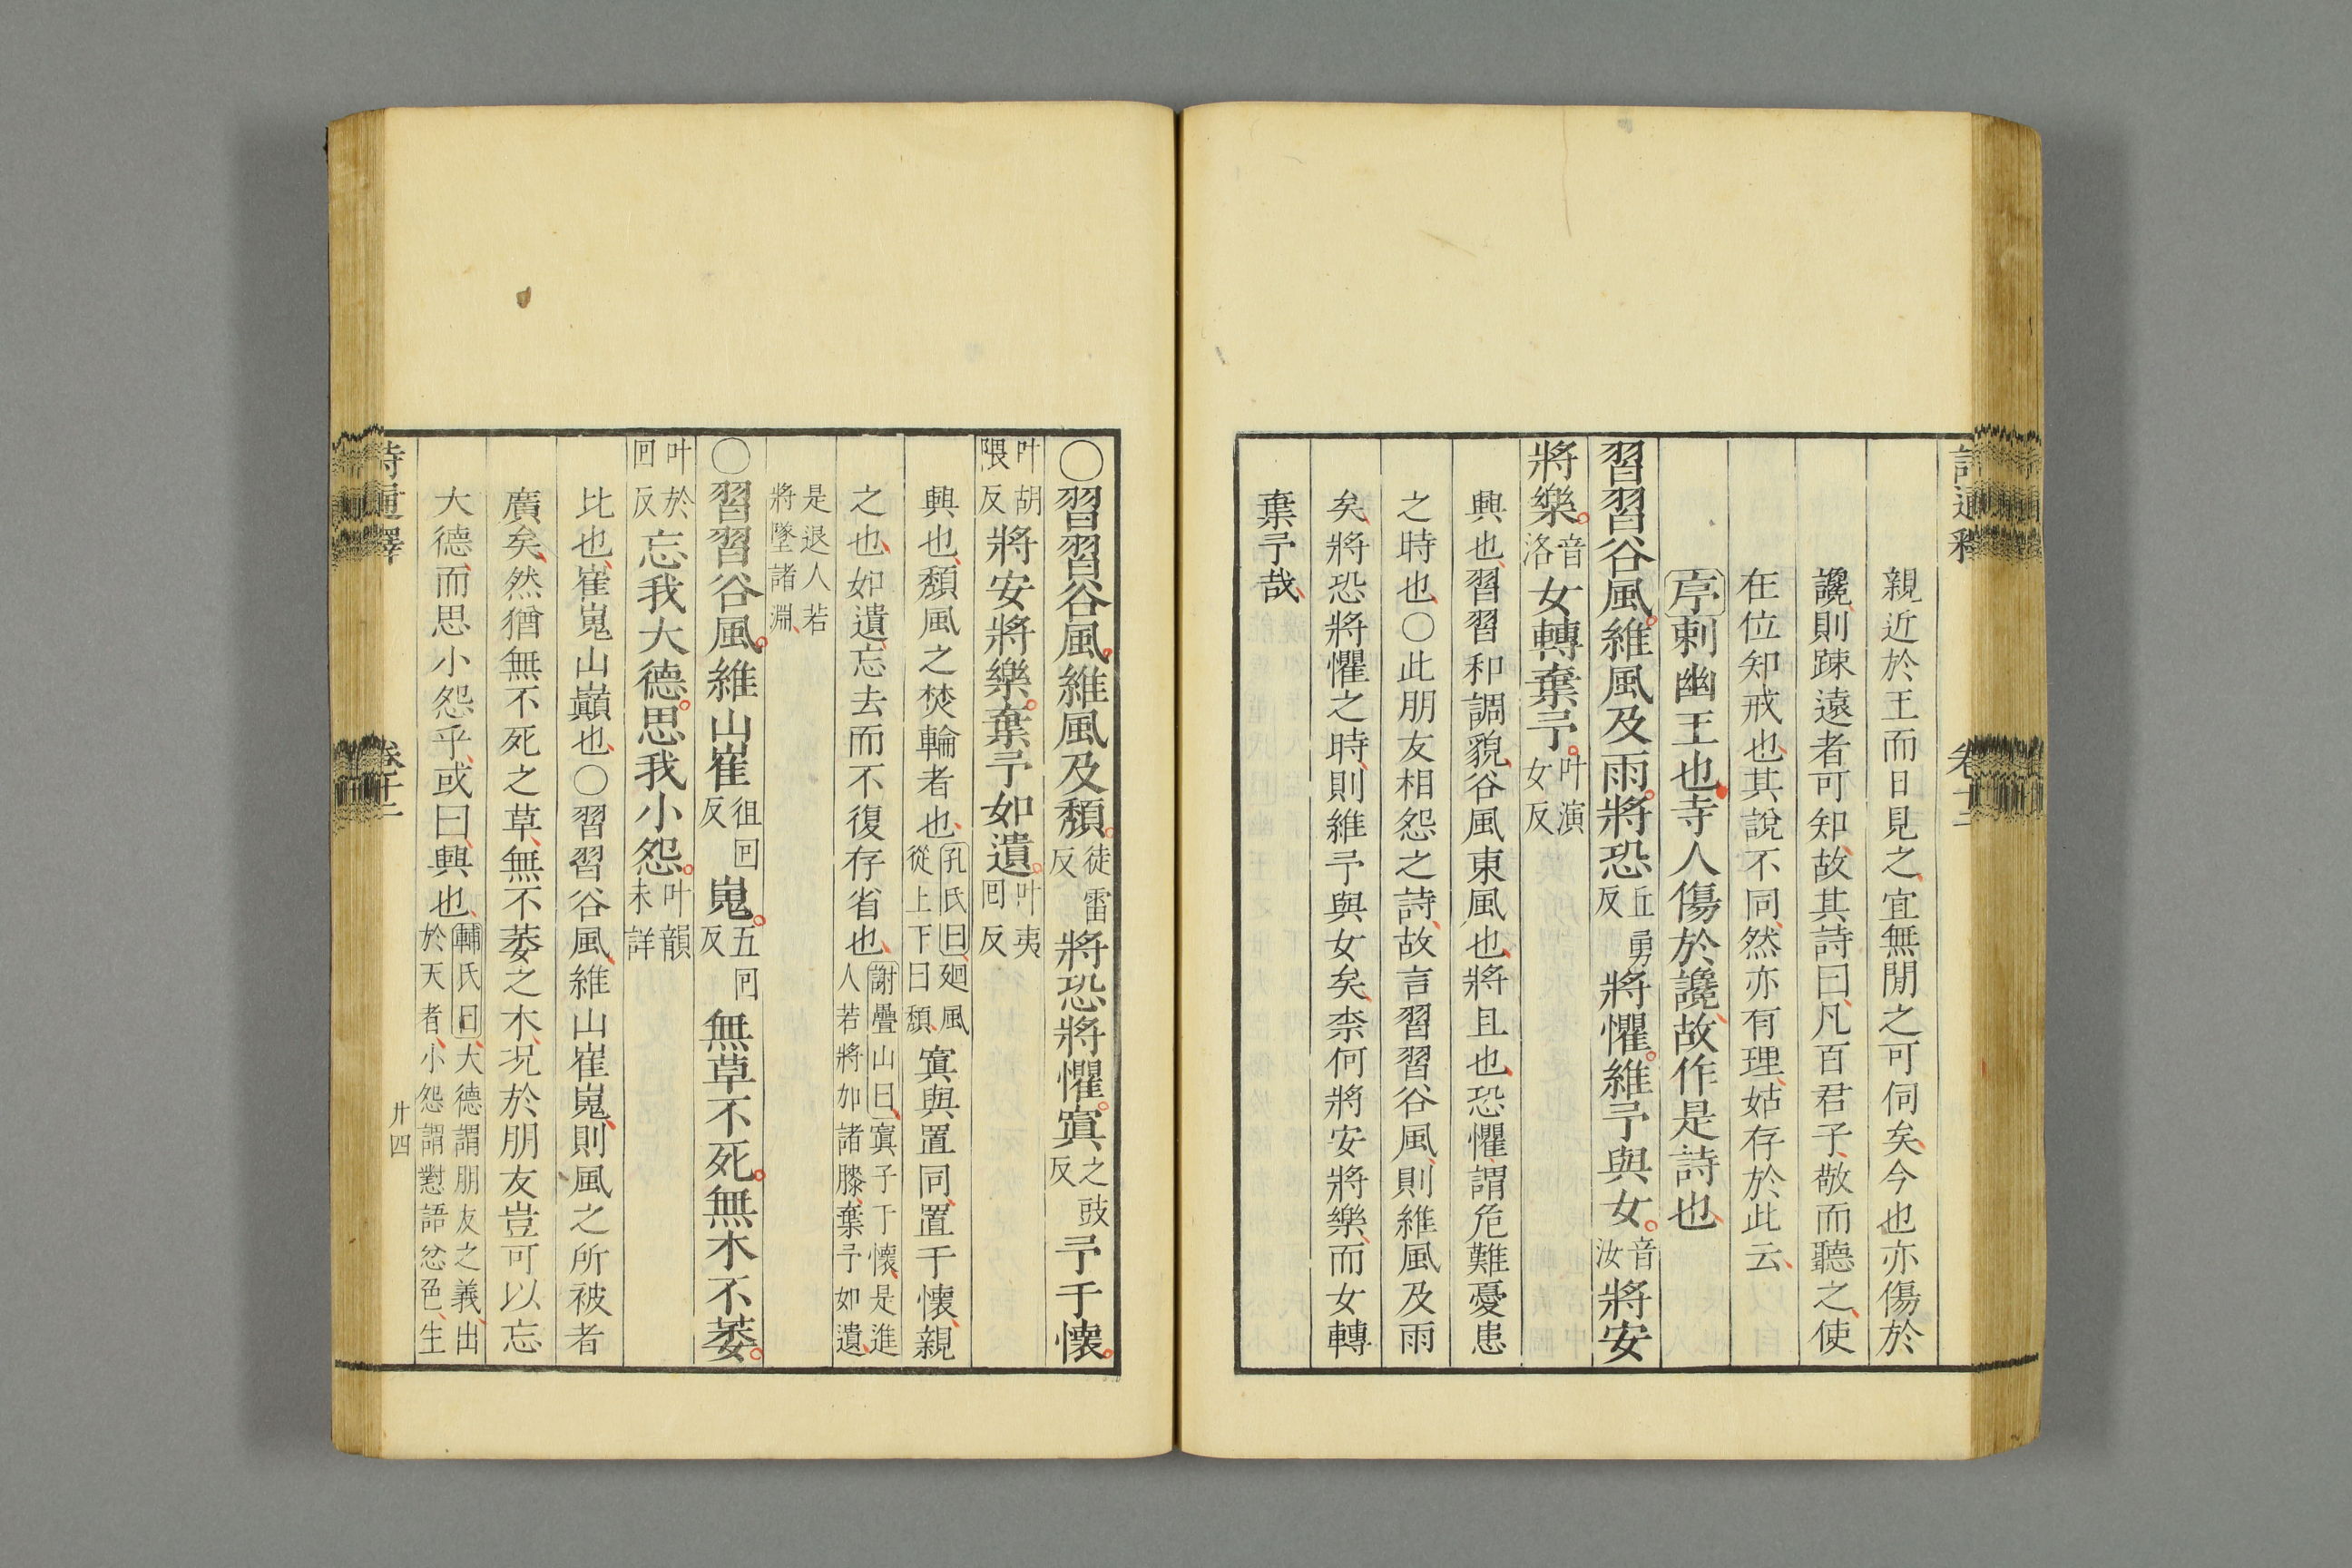 詩通釋
卷十二
親近於王而日見之宜無閒之可伺矣今也亦傷於
讒則踈遠者可知故其詩曰凡百君子敬而聽之使
在位知戒也其說不同然亦有理姑存於此云
序刺幽王也寺人傷於讒故作是詩也
習習谷風維風及雨將恐丘勇反將懼維予與女音汝將安
將樂音洛女轉棄予叶演女反
興也習習和調貌谷風東風也將且也恐懼謂危難憂患
之時也○此朋友相怨之詩故言習習谷風則維風及雨
矣將恐將懼之時則維予與女矣柰何將安將樂而女轉
棄予哉
○習習谷風維風及頹徒雷反將恐將懼寘之豉反予于懷
叶胡隈反將安將樂棄予如遺叶夷回反
興也頹風之焚輪者也孔氏曰廻風從上下曰頹寘與置同置于懷親
之也如遺忘去而不復存省也謝疊山曰寘予于懷是進人若將加諸膝棄予如遺
是退人若將墜諸淵
○習習谷風維山崔徂回反嵬五回反無草不死無木不萎
叶於回反忘我大德思我小怨叶韻未詳
比也崔嵬山巔也○習習谷風維山崔嵬則風之所被者
廣矣然猶無不死之草無不萎之木况於朋友豈可以忘
大德而思小怨乎或曰興也輔氏曰大德謂朋友之義出於天者小怨謂懟語忿色生
詩通釋
卷十二
廾四